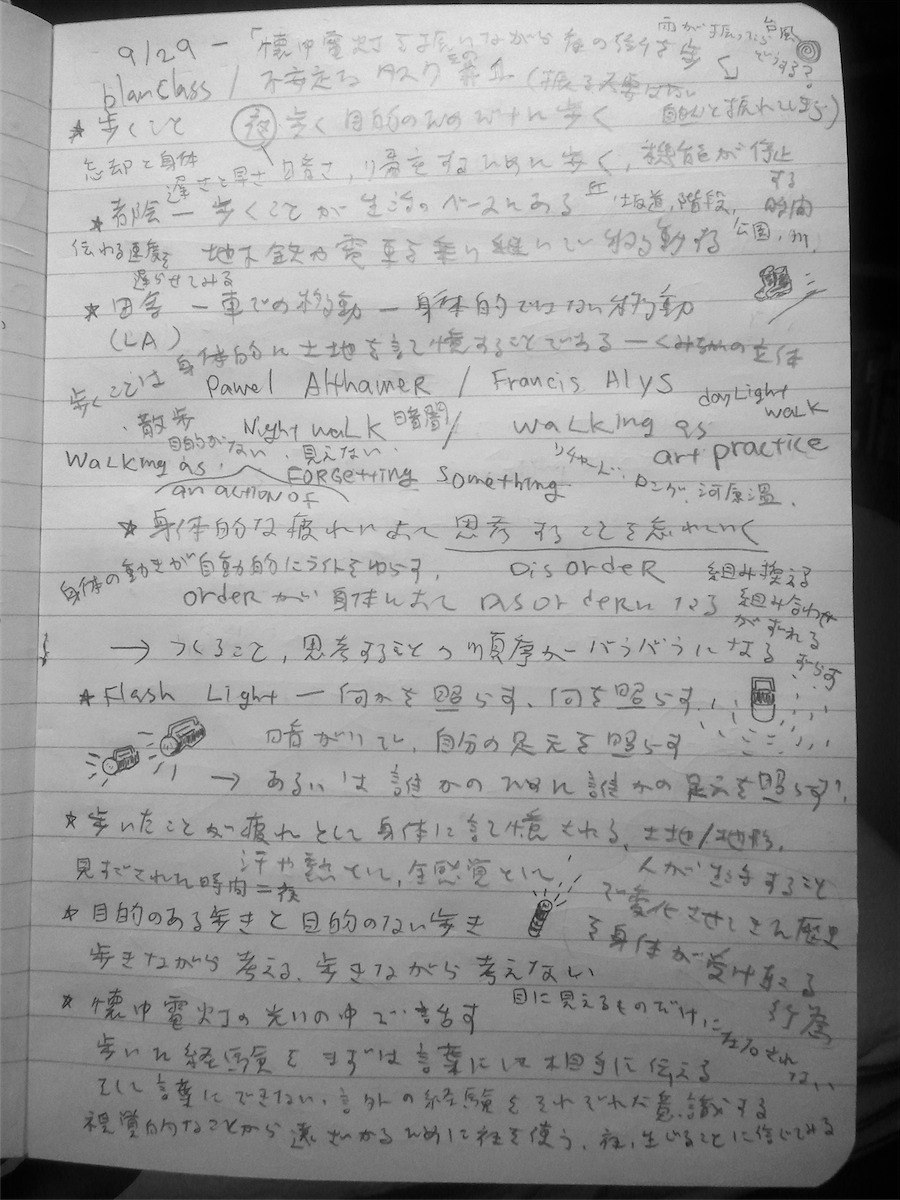 9/29 - 「懐中電灯を振りながら夜の街を歩く」
雨が振ったらどうする?
台風
planClass / 不安定なタスク
(振る必要はない 自然と振れてしまう)
★ 歩くこと 夜 歩く目的のためだけに歩く
忘却と身体
遅さと早さ 暗さ,帰宅するために歩く,機能が停止する時間
★ 都会 — 歩くことが生活のベースにある 丘,坂道,階段,公園,川,
伝わる速度を遅らせてみる
地下鉄や電車を乗り継いで移動する
★ 田舎 — 車での移動 — 身体的ではない移動
(LA)
身体的に土地を記憶することである
歩くことは
Pawel Althamer / Francis Alys
・散歩 Night walk 暗闇 / walking as art practice
daylight walk
目的がない、見えない、
walking as an action of FORGetting something
リチャード・ロング、河原温、
★ 身体的な疲れによって思考することを忘れていく
身体の動きが自動的にライトをゆらす,
DisordeR 組み換える
ordeR が身体によって DisordeRになる 組み合わせがずれる ずらす
→ つくること,思考することの順序がバラバラになる
★ Flash Light — 何かを照らす、何を照らす,
暗がりで,自分の足元を照らす
→ あるいは誰かのために誰かの足元を照らす,
★ 歩いたことが疲れとして身体に記憶される,土地/地形,
汗や熱として,全感覚として,
見すごされた時間=夜
人が生活することで変化させてきた歴史を身体が受け取る行為
★ 目的のある歩きと目的のない歩き
歩きながら考える、歩きながら考えない
目に見えるものだけに左右されない
★ 懐中電灯の光の中で話す
歩いた経験をまずは言葉にして相手に伝える
そして言葉にできない,言外の経験をそれぞれが意識する
視覚的なことから遠ざかるために夜を使う、夜,生じることに信じてみる